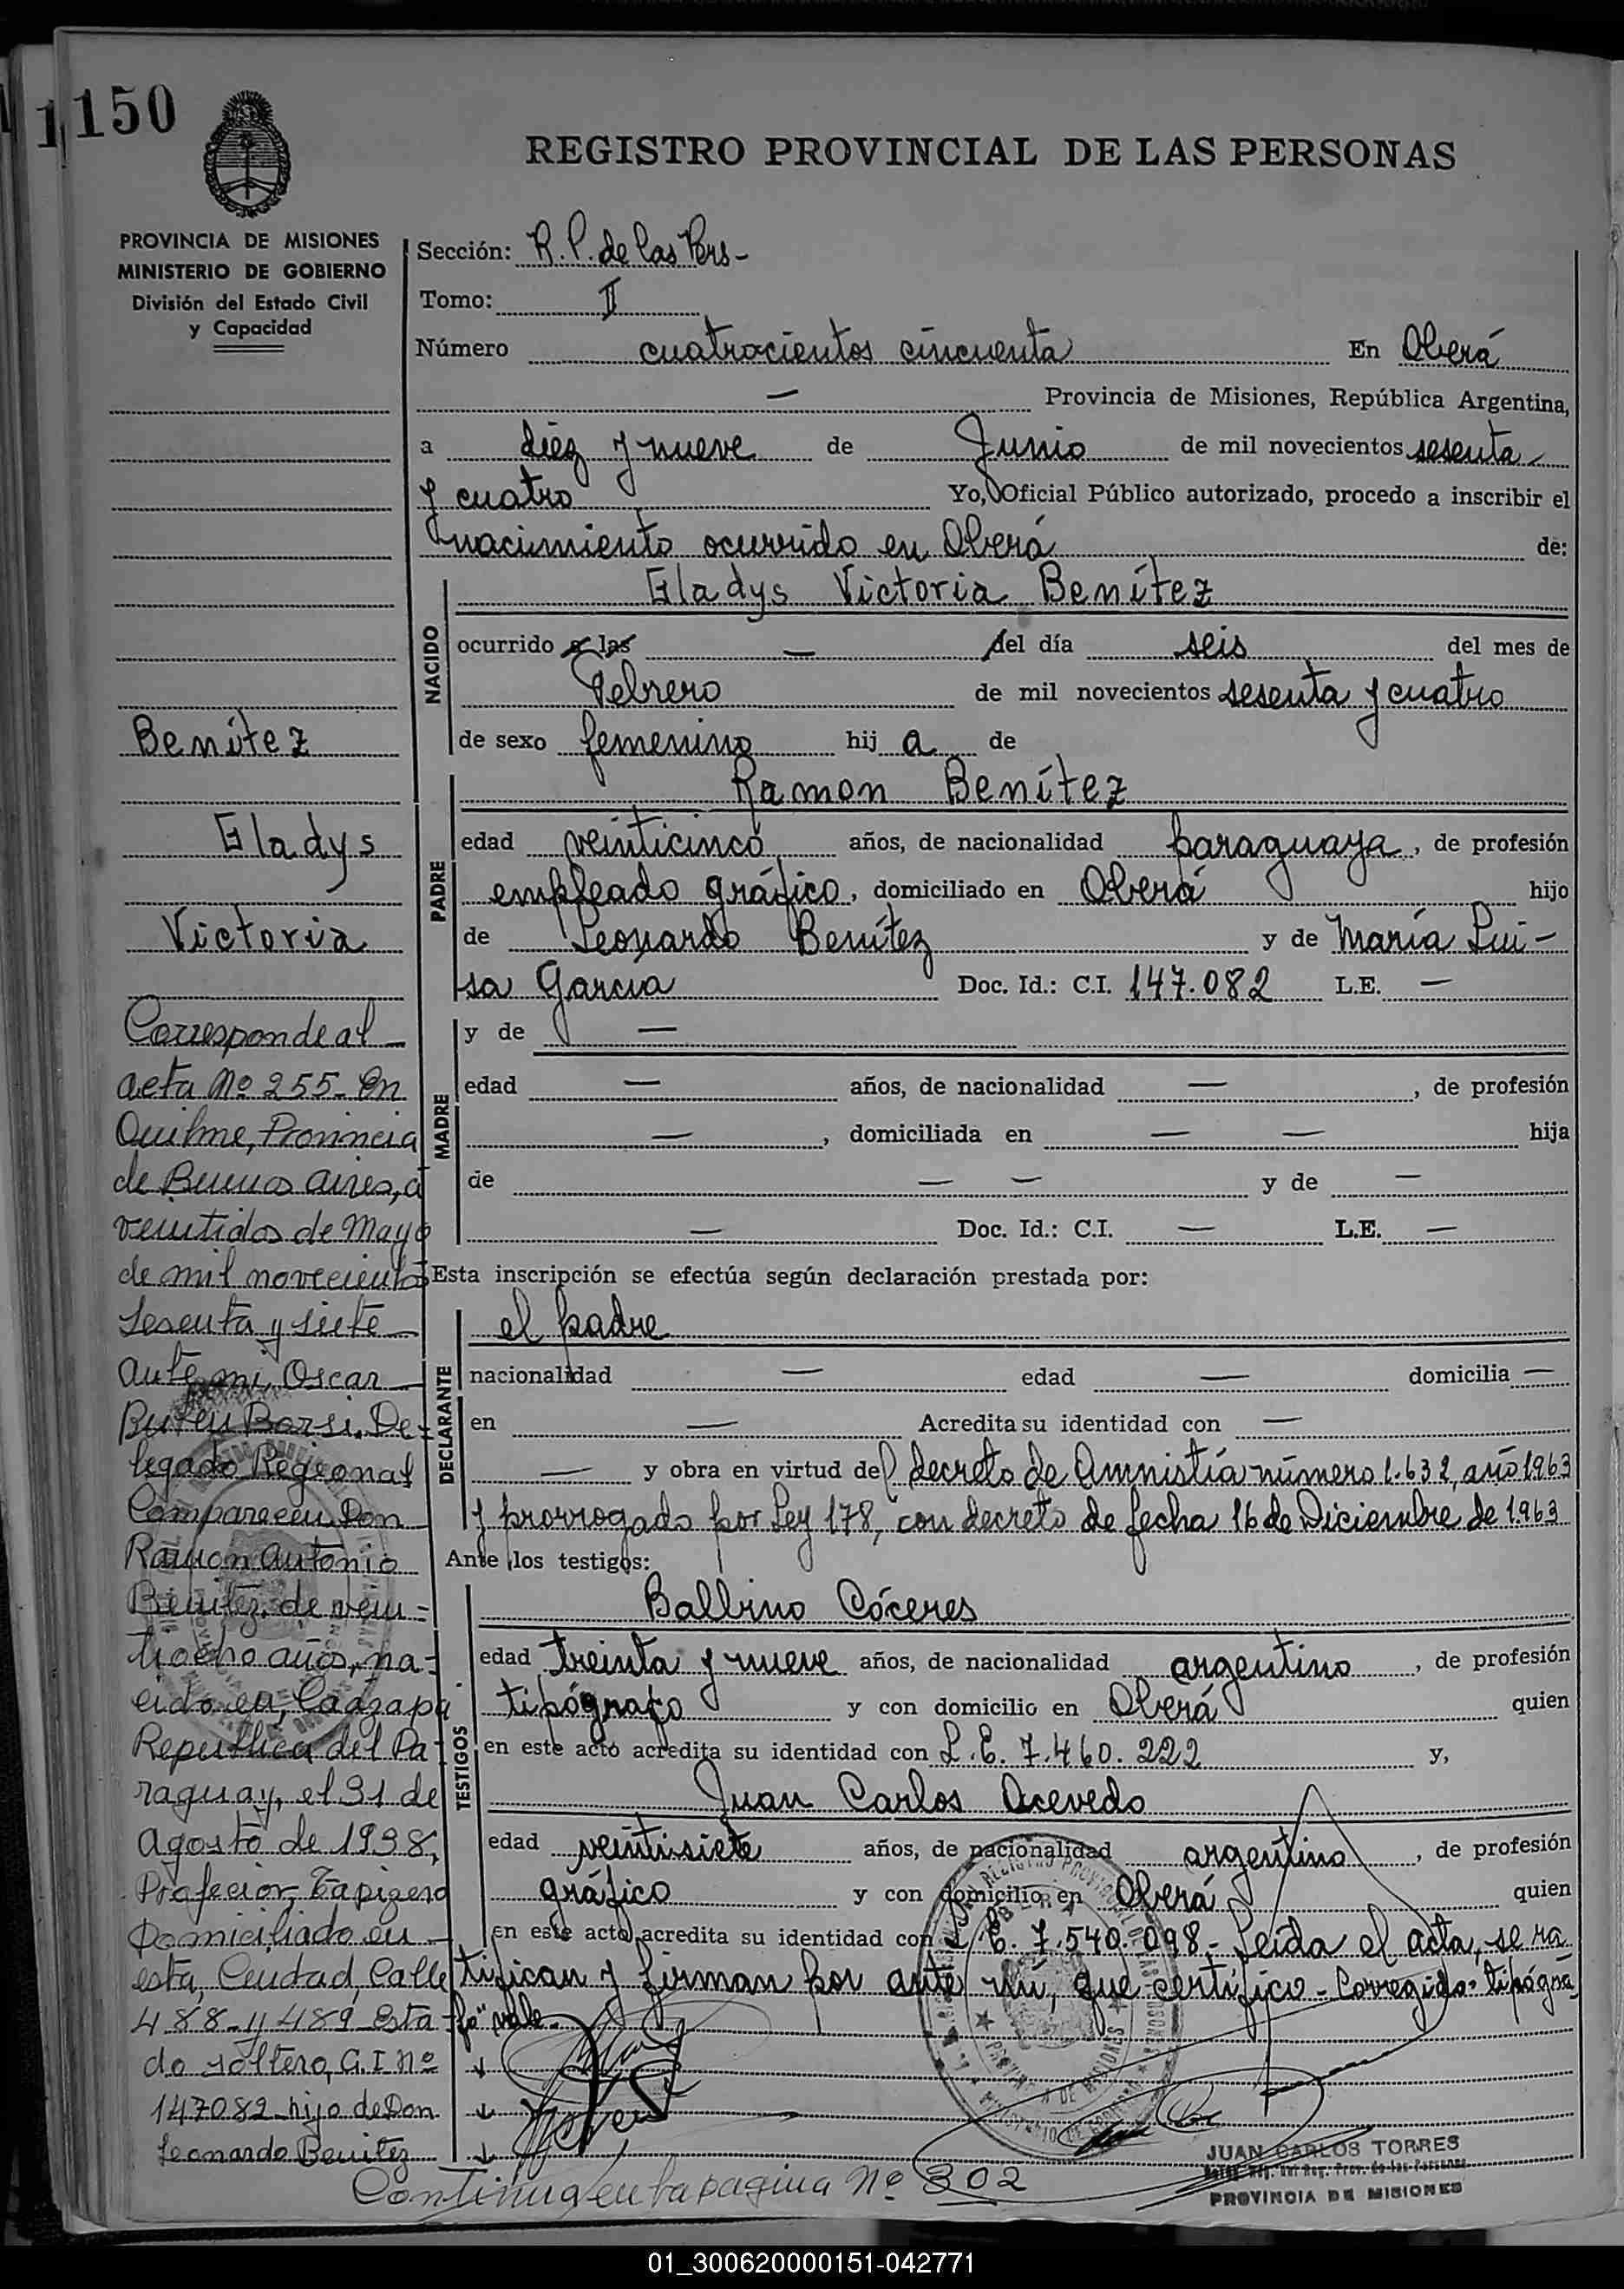 1150
REGISTRO PROVINCIAL DE LAS PERSONAS
PROVINCIA DE MISIONES
MINISTERIO DE GOBIERNO
División del Estado Civil
y Capacidad
Sección: R. P. de las Pers-
Tomo: II
Número cuatrocientos cincuenta En Oberá
— Provincia de Misiones, República Argentina,
a diez y nueve de Junio de mil novecientos sesenta
y cuatro Yo, Oficial Público autorizado, procedo a inscribir el
nacimiento ocurrido en Oberá de:
NACIDO
Gladys Victoria Benítez
ocurrido a las — del día seis del mes de
Febrero de mil novecientos sesenta y cuatro
de sexo femenino hij a de
PADRE
Ramon Benítez
edad veinticinco años, de nacionalidad paraguaya, de profesión
empleado gráfico, domiciliado en Oberá hijo
de Leonardo Benítez y de María Lui-
sa Garcia Doc. Id.: C.I. 147.082 L.E. —
MADRE
y de —
edad — años, de nacionalidad —, de profesión
—, domiciliada en — — hija
de — — y de —
— Doc. Id.: C.I. — L.E. —
Esta inscripción se efectúa según declaración prestada por:
DECLARANTE
el padre
nacionalidad — edad — domicilia —
en — Acredita su identidad con —
— y obra en virtud del decreto de Amnistía número 1.632, año 1963
y prorrogado por Ley 178, con decreto de fecha 16 de Diciembre de 1.963
Ante los testigos:
TESTIGOS
Balbino Cóceres
edad treinta y nueve años, de nacionalidad argentino, de profesión
tipógrafo y con domicilio en Oberá quien
en este acto acredita su identidad con L.E. 7.460.222 y,
Juan Carlos Acevedo
edad veintisiete años, de nacionalidad argentino, de profesión
gráfico y con domicilio en Oberá quien
en este acto acredita su identidad con L.E. 7.540.098.- Leída el acta, se ra
tifican y firman por ante mí, que certifico - Corregido: "tipógra
fo" vale.-
Benítez
Gladys
Victoria
Corresponde al
acta Nº 255- En
Quilme, Provincia
de Buenos Aires, a
veintidos de Mayo
de mil novecientos
sesenta y siete
ante mi, Oscar
Ruben Borsi, De=
legado Regional
Comparecen Don
Ramon Antonio
Benitez, de vein=
tiocho años, na-
cido en, Caazapa
Republica del Pa-
raguay, el 31 de
agosto de 1938,
Profecion, Tapizero
Domiciliado en
esta, Ciudad, Calle
488 y 489 esta
do soltero, C.I Nº
147082 hijo de Don
Leonardo Benitez
Continua en la pagina Nº 302
JUAN CARLOS TORRES
PROVINCIA DE MISIONES
01_300620000151-042771